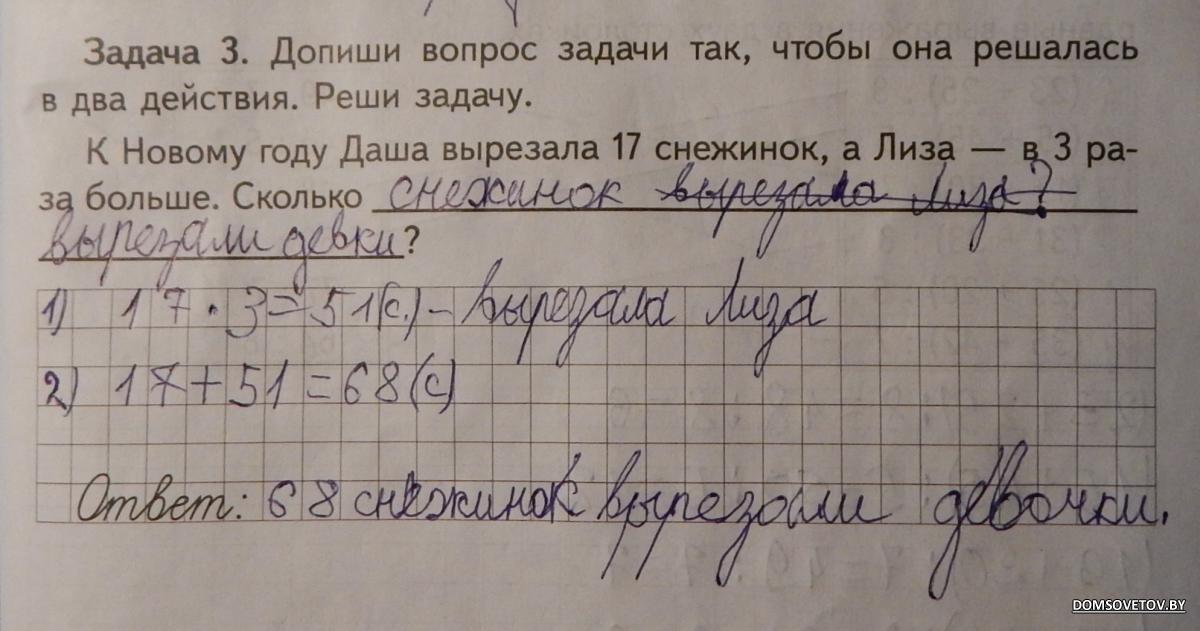 Задача 3. Допиши вопрос задачи так, чтобы она решалась
в два действия. Реши задачу.
К Новому году Даша вырезала 17 снежинок, а Лиза — в 3 ра-
за больше. Сколько снежинок вырезала Лиза?
вырезали девки?
1) 17 · 3 = 51 (с.) – вырезала Лиза
2) 17 + 51 = 68 (с)
Ответ: 68 снежинок вырезали девочки.
DOMSOVETOV.BY